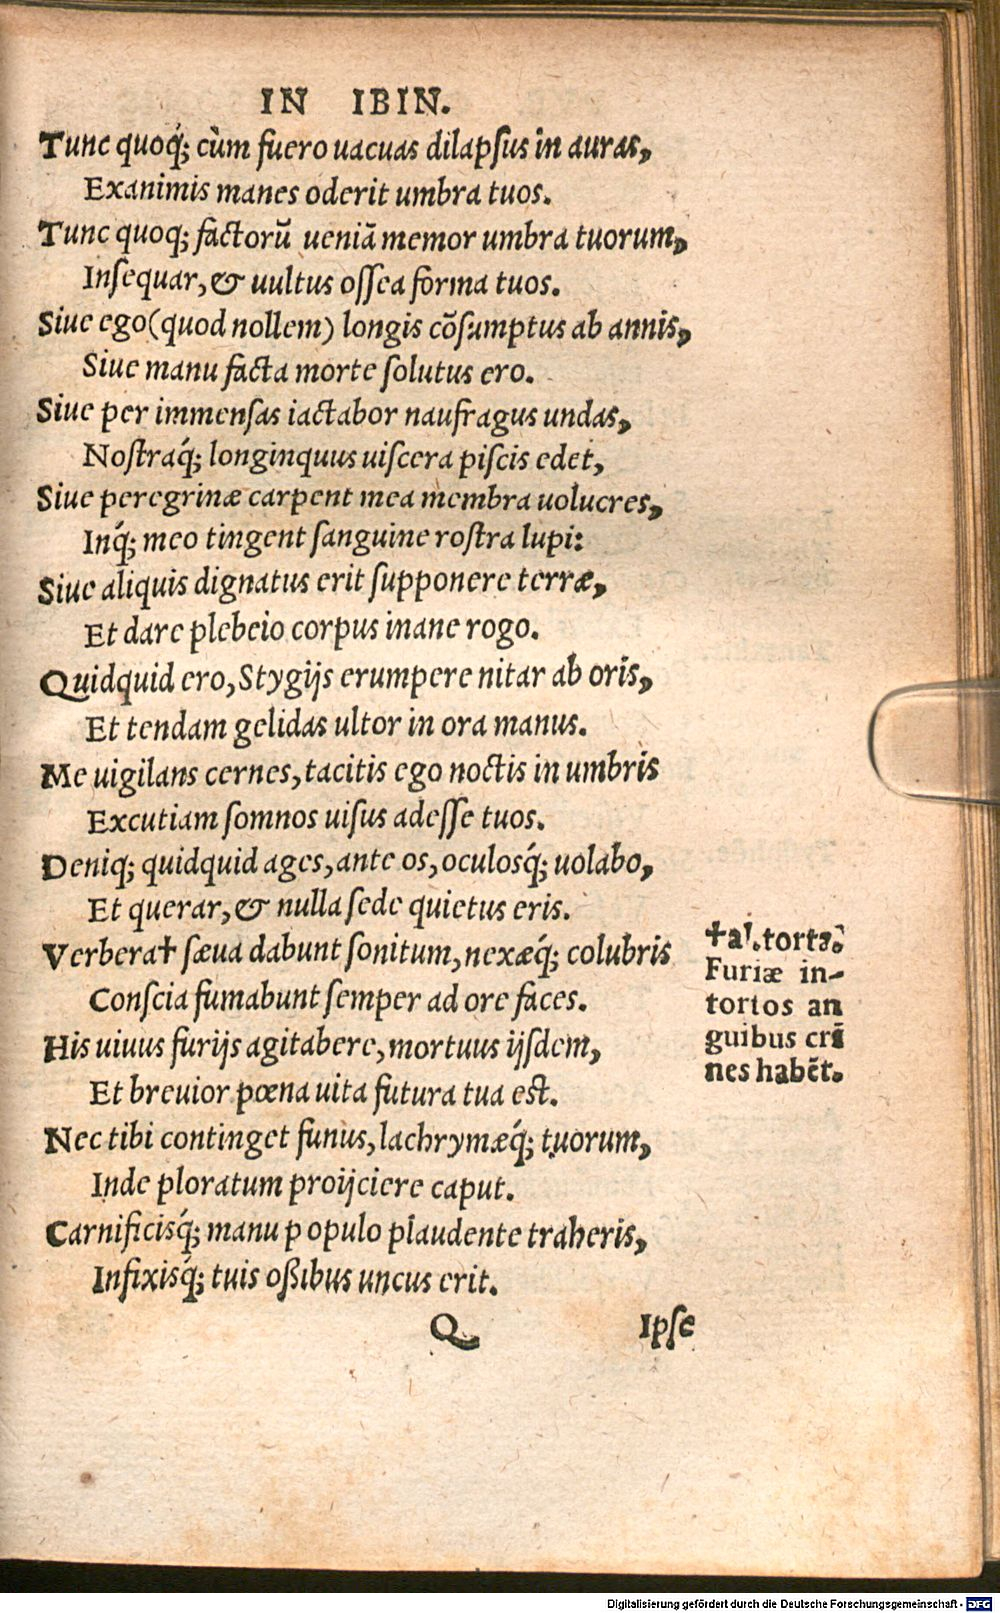 IN IBIN.
Tunc quoq́; cùm fuero uacuas dilapſus in auras,
Exanimis manes oderit umbra tuos.
Tunc quoq; factorũ ueniã memor umbra tuorum,
Inſequar, & uultus oſſea forma tuos.
Siue ego (quod nollem) longis cõſumptus ab annis,
Siue manu facta morte ſolutus ero.
Siue per immenſas iactabor naufragus undas,
Noſtraq́; longinquus uiſcera piſcis edet,
Siue peregrinæ carpent mea membra uolucres,
Inq́; meo tingent ſanguine roſtra lupi:
Siue aliquis dignatus erit ſupponere terræ,
Et dare plebeio corpus inane rogo.
Quidquid ero, Stygijs erumpere nitar ab oris,
Et tendam gelidas ultor in ora manus.
Me uigilans cernes, tacitis ego noctis in umbris
Excutiam ſomnos uiſus adeſſe tuos.
Deniq; quidquid ages, ante os, oculosq́; uolabo,
Et querar, & nulla ſede quietus eris.
Verbera† ſæua dabunt ſonitum, nexæq́; colubris
Conſcia fumabunt ſemper ad ore faces.
His uiuus furijs agitabere, mortuus ijſdem,
Et breuior pœna uita futura tua est.
Nec tibi continget funus, lachrymæq́; tuorum,
Inde ploratum proijciere caput.
Carnificisq́; manu p opulo plaudente traheris,
Infixisq́; tuis oßibus uncus erit.
†al. torta.
Furiæ in-
tortos an
guibus cri
nes habẽt.
Q Ipſe
Digitalisierung gefördert durch die Deutsche Forschungsgemeinschaft - DFG